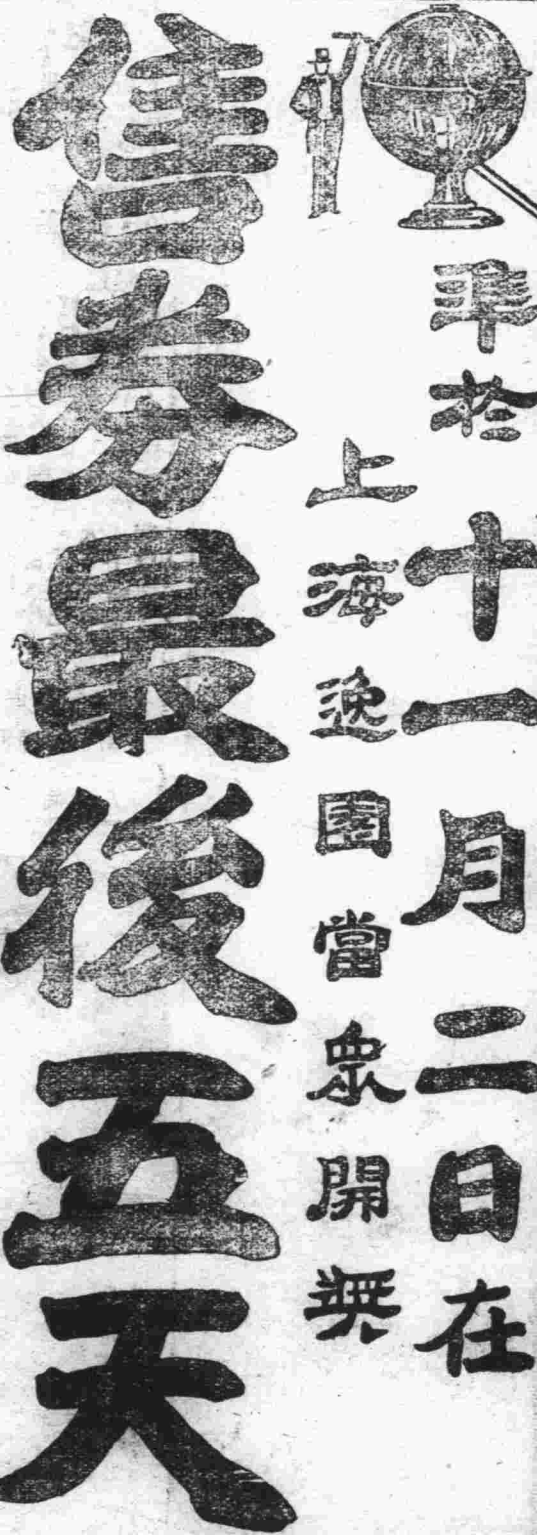 準於十一月二日在
上海逸園當眾開獎
售券最後五天